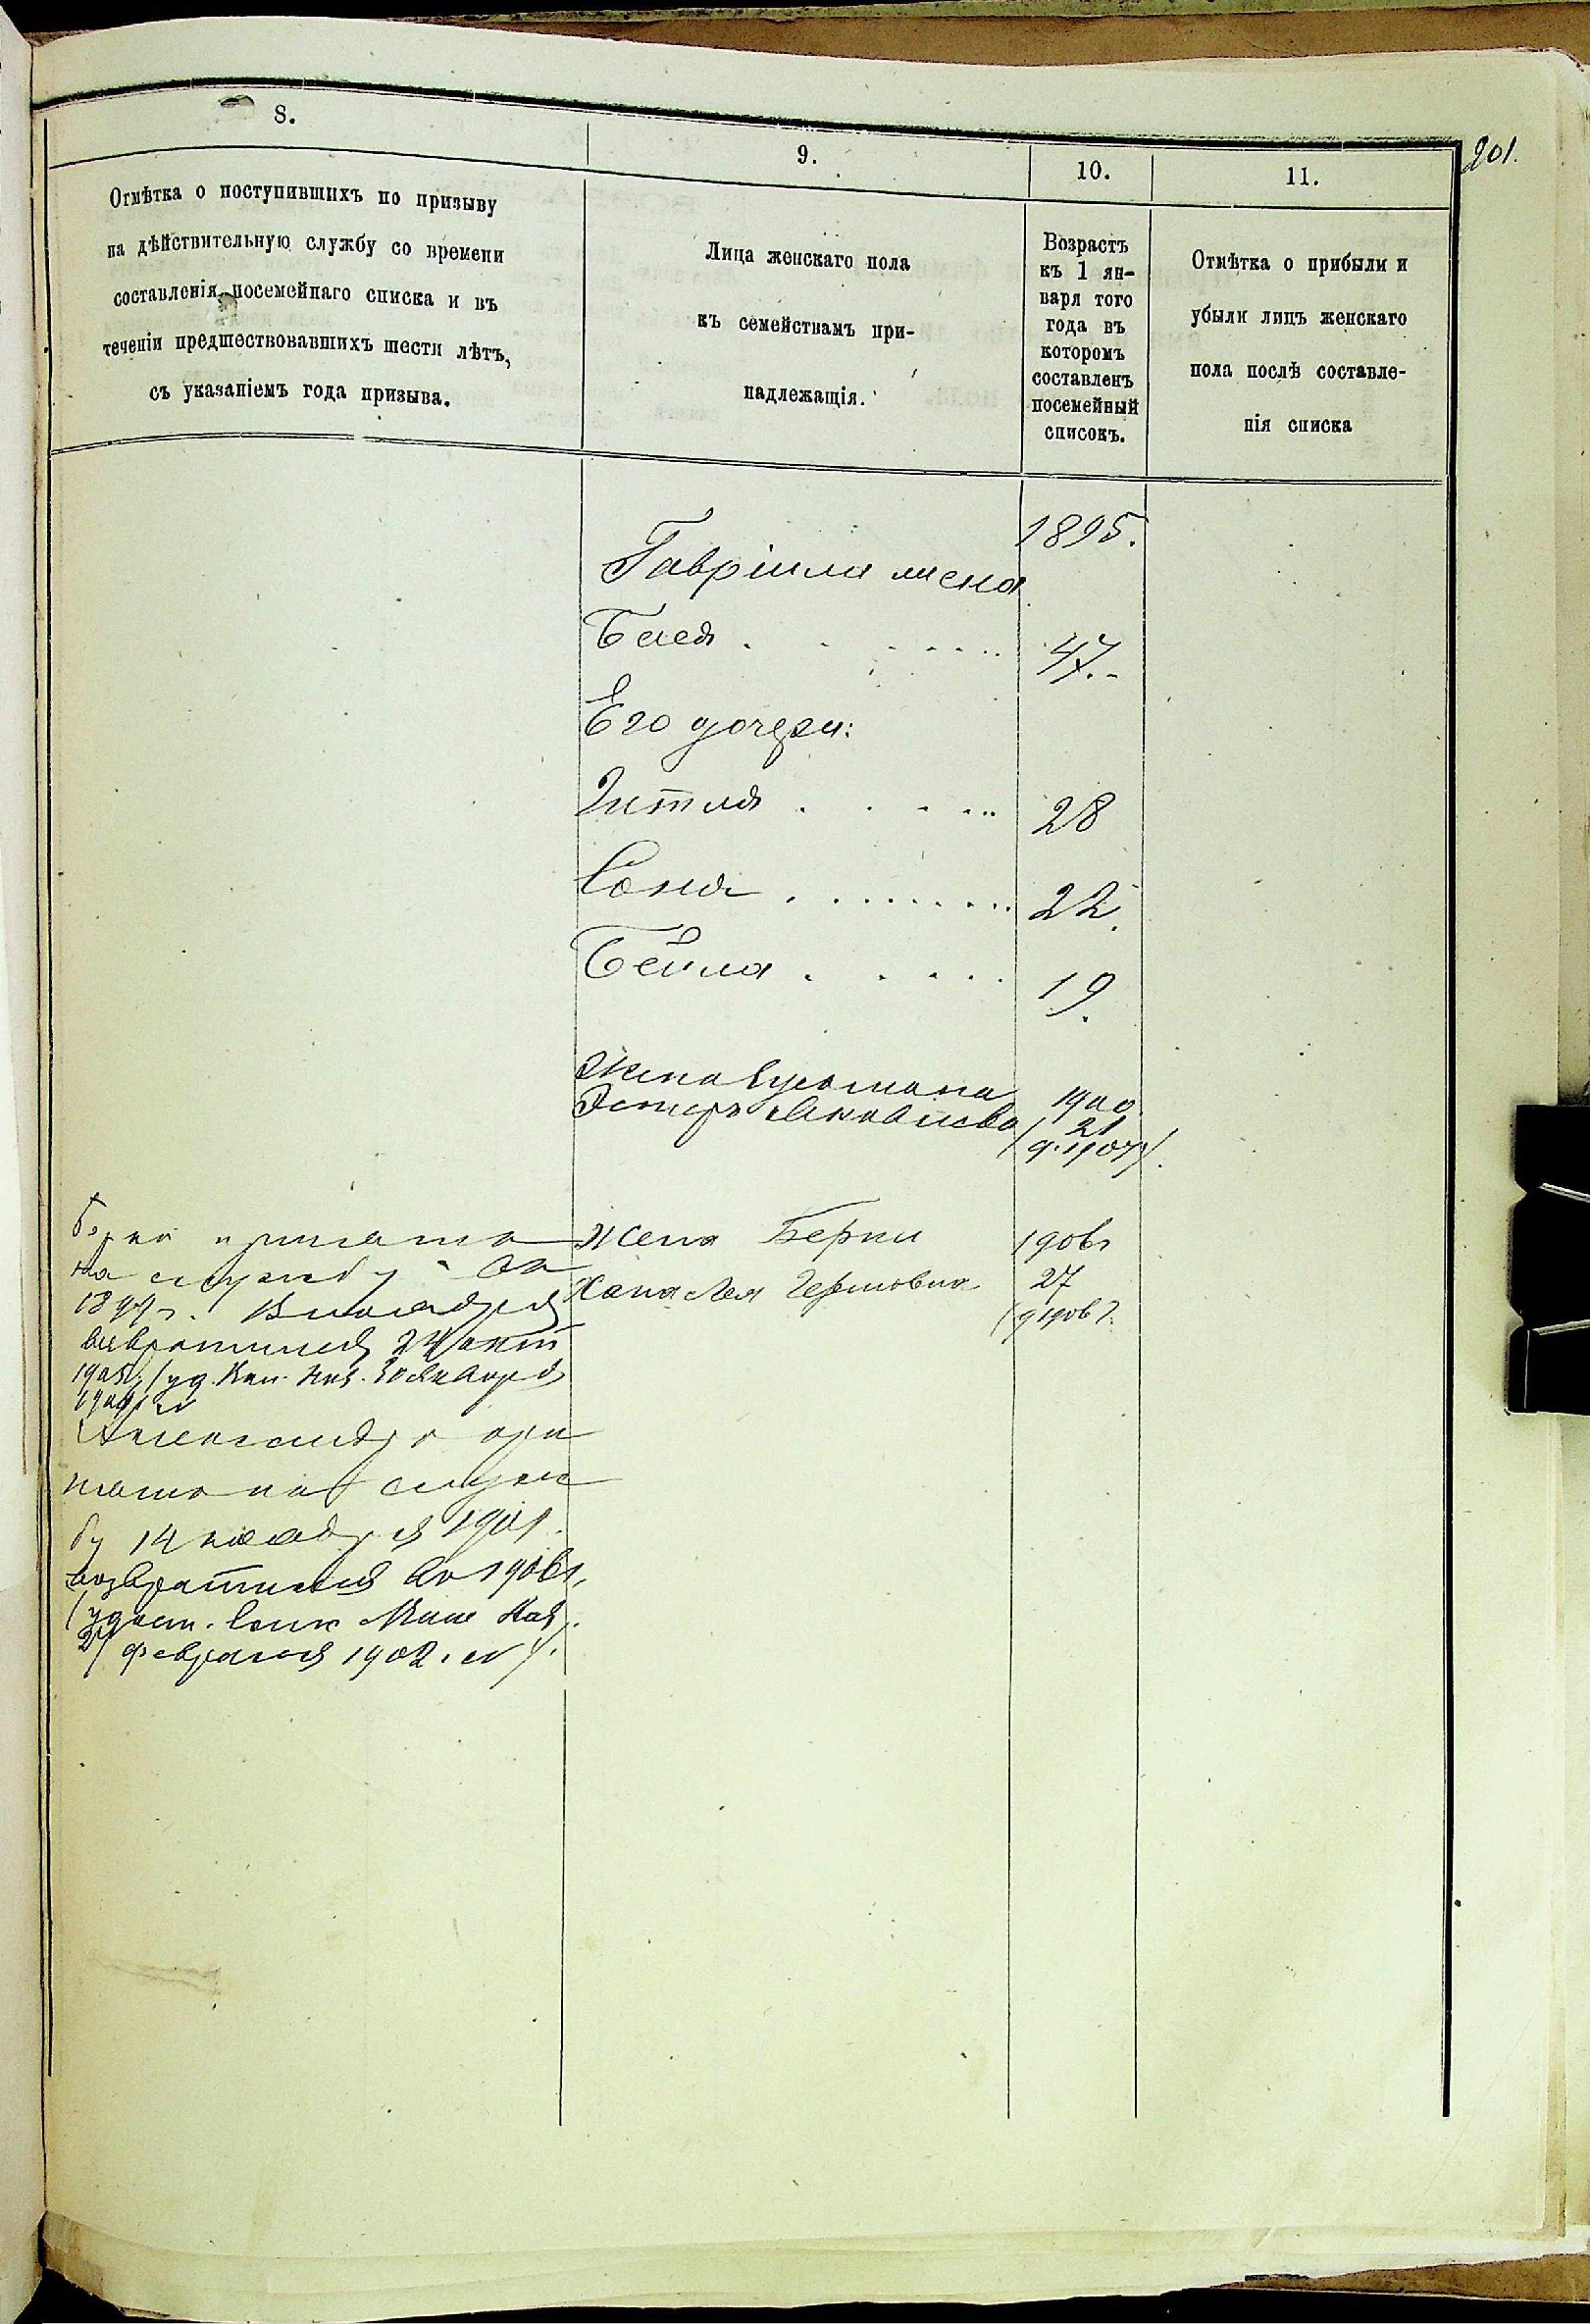 201.
8.
9.
10.
11.
Отмѣтка о поступившихъ по призыву
на дѣйствительную службу со времени
составленія посемейнаго списка и въ
теченіи предшествовавшихъ шести лѣтъ,
съ указаніемъ года призыва.
Лица женскаго пола
къ семействамъ при-
надлежащія.
Возрастъ
къ 1 ян-
варя того
года въ
которомъ
составленъ
посемейный
списокъ.
Отмѣтка о прибыли и
убыли лицъ женскаго
пола послѣ составле-
нія списка
1895.
Гавріила жена
Бася 47.
Его дочери:
Зитля 28
Соня 22.
Бейла 19.
Жена
Эстеръ 1900
21
1907
Жена Берки 1906
Хана Лея 27
Берко принятъ
на службу
ноября
возвратился 24 окт
1905
Александръ при
нятъ на служ
бу 14 ноября 1901.
возвратился 1906
февраля 1902.